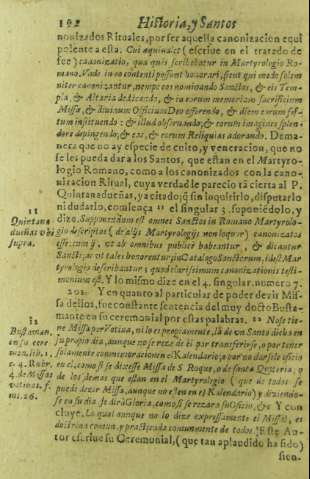 192 Historia, y Santos
nonizados Rituales, por ser aquella canonizacion equi
polente a esta. Cui aquivalet (escriue en el tratado de
fee) canonizatio, qua quis scribitur in Martyrologio Ro-
mano. Vnde in eo contenti possunt honorari, sicut qui modo solem
niter canonizantur, nempe eos nominando Sanctos, & eis Tem-
pla, & Altaria dedicando, & in eorum memoriam sacrificium
Missæ, & diuinum Officium Deo offerendo, & diem eorum fes-
tum instituendo: & illud obseruando, & eorum imagines splen-
dore depingendo, & eas, & eorum Reliquias adorando. Dema-
nera que no ay especie de culto, y veneracion, que no
se les pueda dar a los Santos, que estan en el Martyro-
logio Romano, como a los canonizados con la cano-
nizacion Ritual, cuya verdad le parecio tã cierta al P.
Quintanadueñas, ya citado, q̃ sin inquirirlo, disputarlo
ni dudarlo, comiença 11 el singular 3. suponiẽdolo, y
11
Quintana
dueñas vbi
supra.
dize, Supponendum est omnes Sanctos in Romano Martyrolo-
gio descriptos (de alijs Martyrologijs non loquor) canonizatos
esse, cum ij, vt ab omnibus publicè habeantur, & dicantur
Sancti; ac vt tales honorentur in Catalogo Sanctorum, idest Mar
tyrologio describantur: quod clarissimum canonizationis testi-
monium est. Y lo mismo dize en el 4. singular, numero 7.
202 Y en quanto al particular de poder dezir Mis-
sa dellos, fue constante sentencia del muy docto Busta-
mante en su ceremonial por estas palabras. 12 No se tie-
12
Bustaman.
en su cere
mon. lib. 1.
c. 4. Rubr.
4. de Missas
votiuas. f.
mi. 26.
ne Missa por Votiua, ni lo es propiamente, la de vn Santo dicha en
su propio dia, aunque no se reze de èl por transferirse, o por tener
solamente commemoracion en Kalendario; o por no darsele oficio
en el, como si se dixesse Missa de S. Roque, o de santa Quiteria, o
de los demas que estan en el Martyrologio (que de todos se
puede dezir Missa, aunque no esten en el Kalendario) y diziendo-
se en su dia se dirà Gloria, como si se rezara su Oficio, &c. Y con
cluye. Lo qual aunque no lo dize expressamente el Missal, es
doctrina comun, y practicada comunmente de todos. Este Au-
tor escriue su Ceremonial, (que tan aplaudido ha sido)
sien-